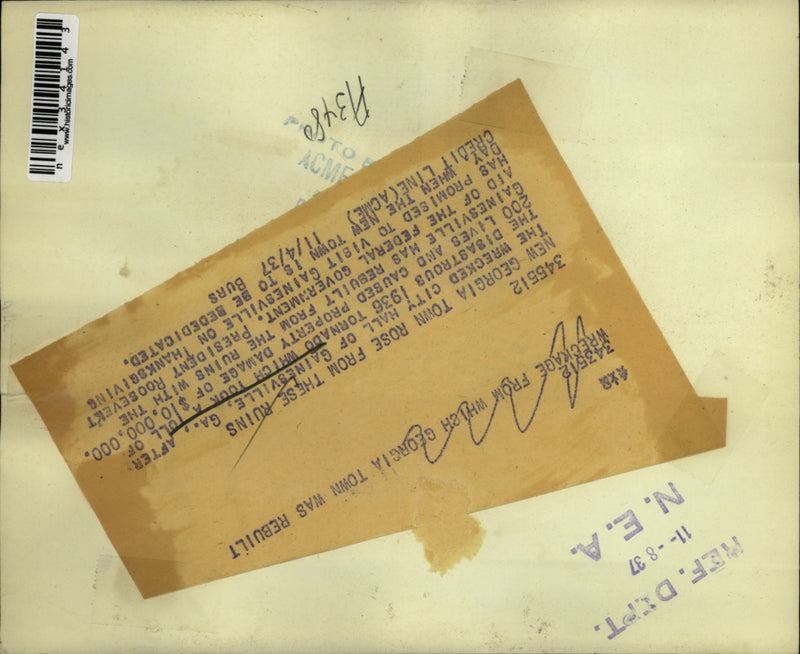 4X2
343512
WRECKAGE FROM WHICH GEORGIA TOWN WAS REBUILT
345512
NEW GEORGIA TOWN ROSE FROM THESE RUINS
THE WRECKED CITY HALL OF GAINESVILLE, GA., AFTER
THE DISASTROUS 1936 TORNADO WHICH TOOK A TOLL OF
200 LIVES AND CAUSED PROPERTY DAMAGE OF $10,000,000.
GAINESVILLE HAS REBUILT FROM THE RUINS WITH THE
AID OF THE FEDERAL GOVERNMENT. PRESIDENT ROOSEVELT
HAS PROMISED TO VISIT GAINESVILLE ON THANKSGIVING
DAY WHEN THE NEW TOWN IS TO BE REDEDICATED.
CREDIT LINE(ACME) 11/4/37 BURS
REF. DEPT.
11-8 37
N. E. A.
PHOTO
ACME
A3480
nex34143
www.historicimages.com